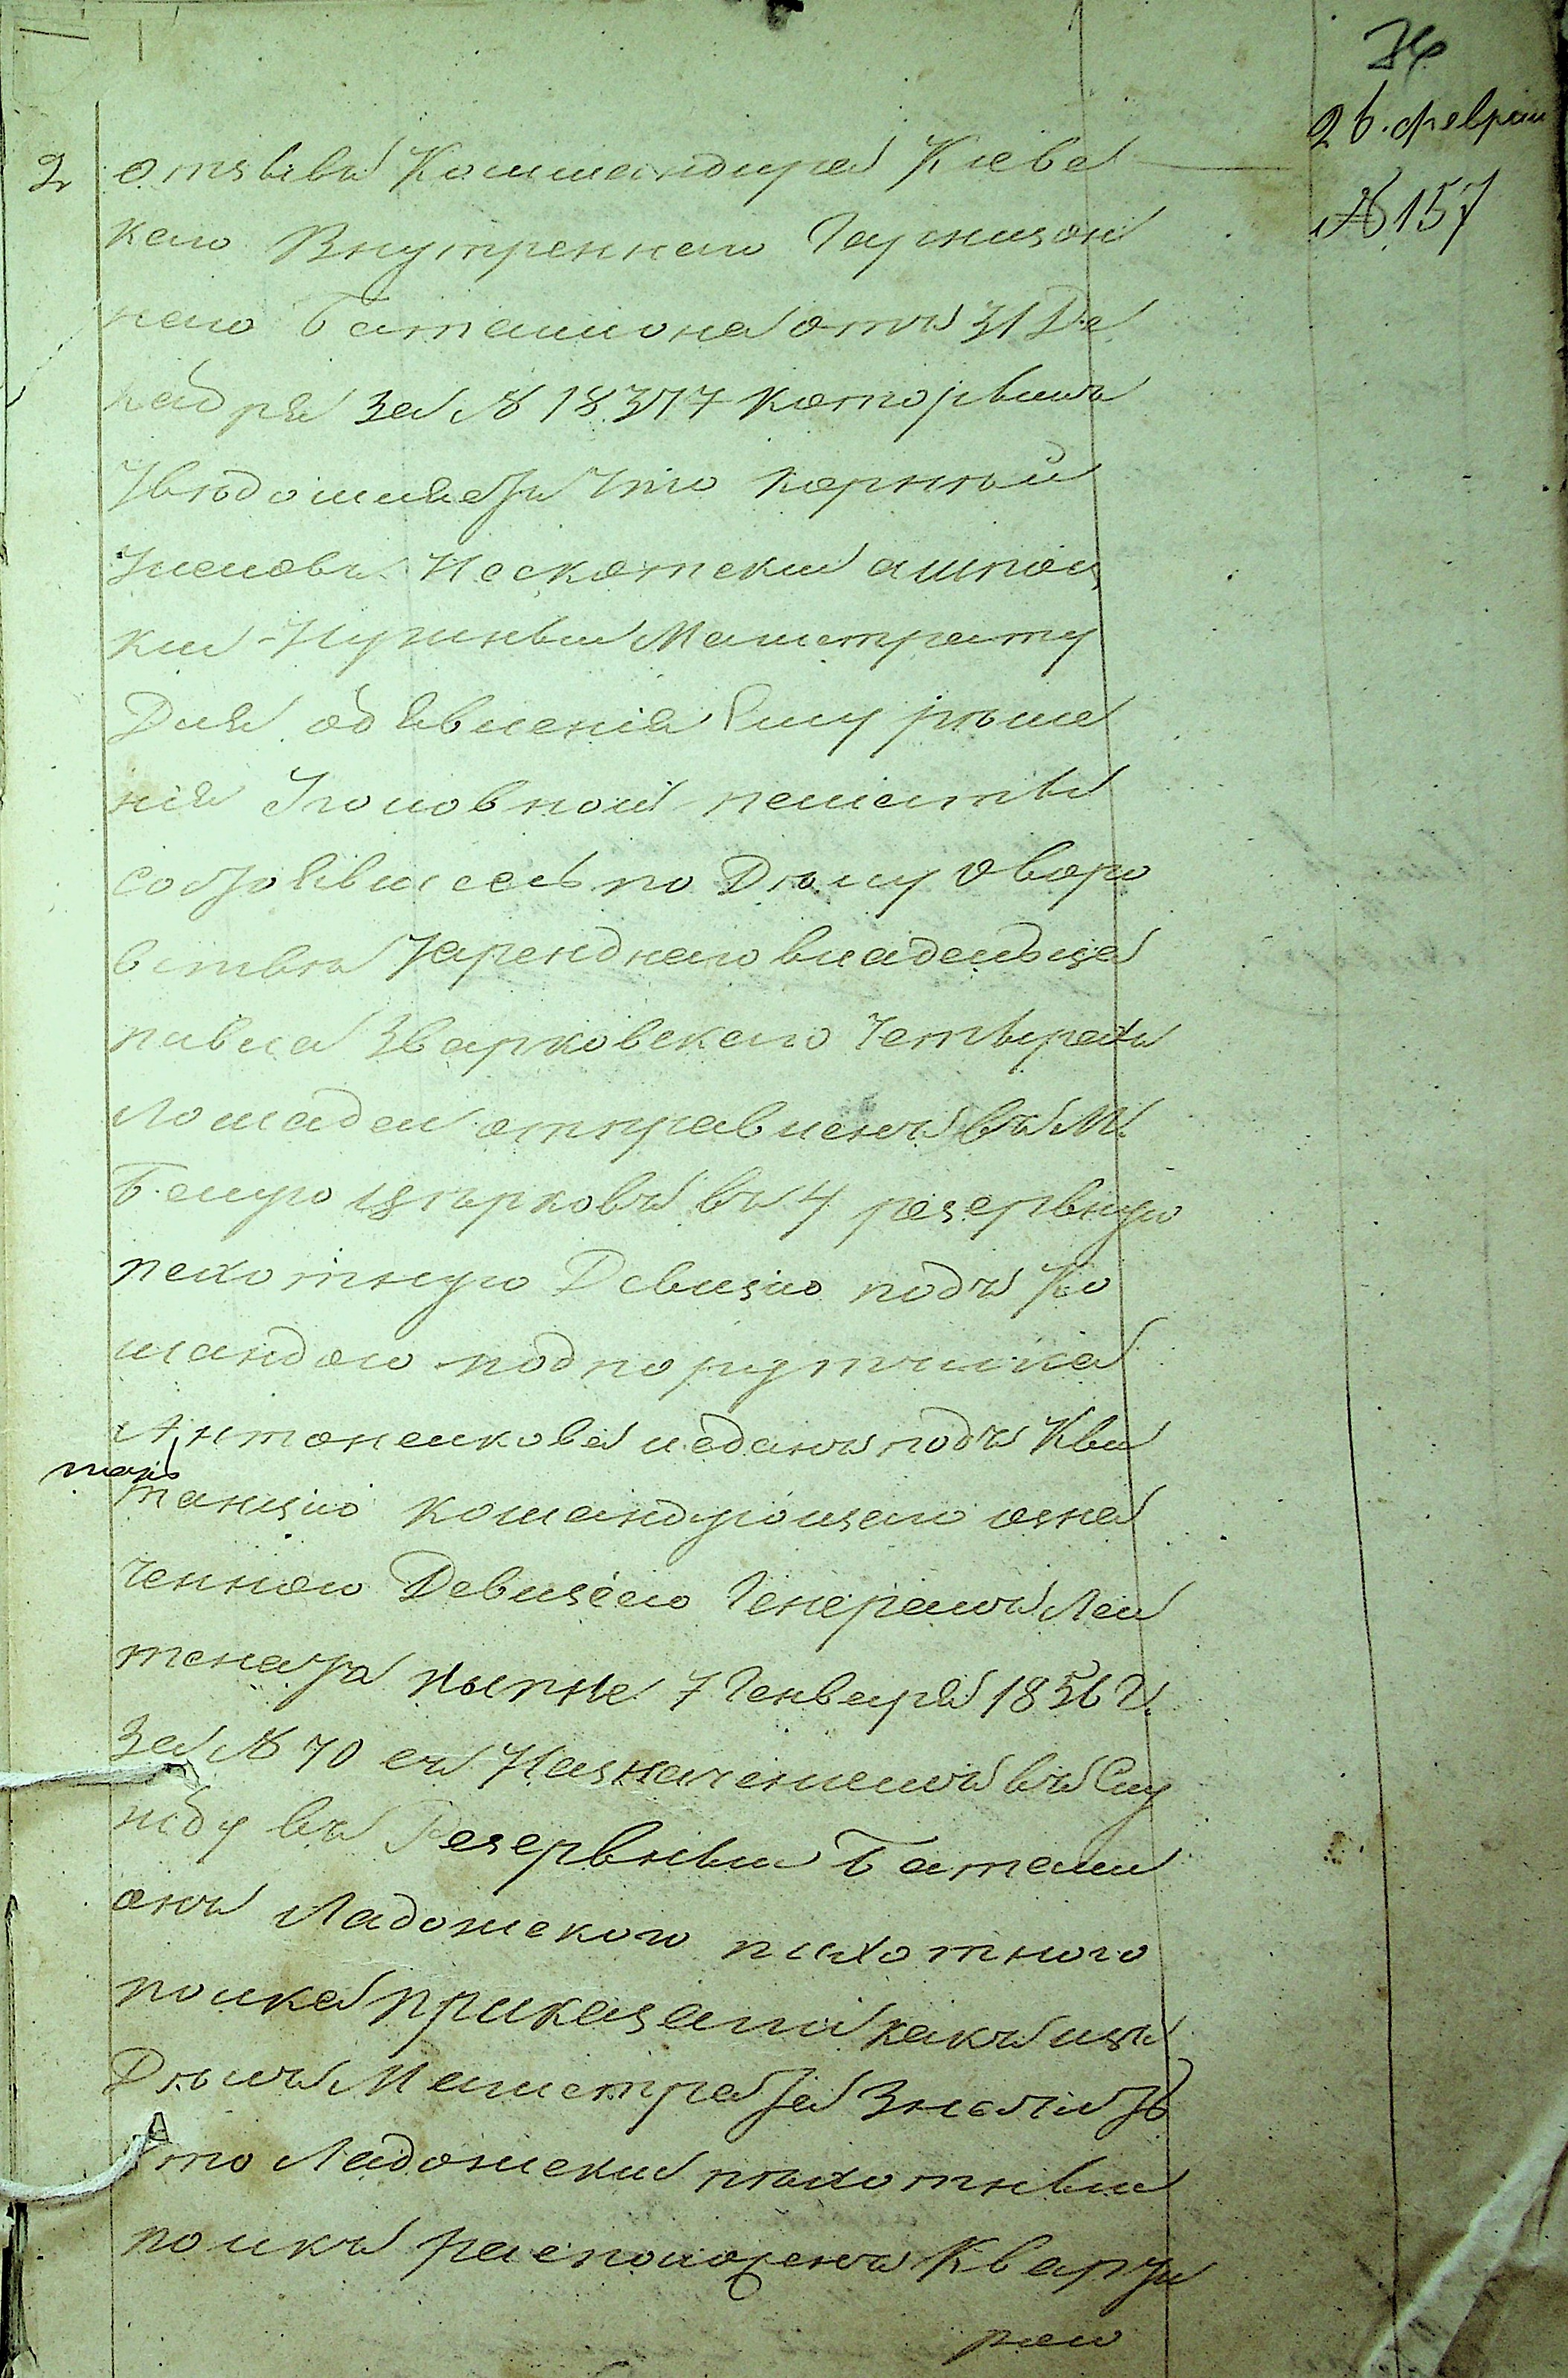 26. феврал
№ 157
2 отзывъ Коммандира Киевс
каго Внутреннаго Гарнизон
наго Баталиона отъ 31 Де
кабря за № 18377 которымъ
Увѣдомляетъ что
Нескотский
Нужный Магистрату
Для объявления Ему рѣше
ния Уголовной палаты
состоявшесь по Дѣлу о воро
вствѣ Уарендного владельца
павла Зварковского Четырехъ
Лошадей отправленъ въ М.
Белую цѣрковъ въ 4 резервную
пехотную Девизию подъ Ко
мандою подпорутчика
Антоненкова и сданъ подъ Кви
танцию командующаго озна
ченною Девизею Генералъ Леи
тенатъ 7 Генваря 1856 Г.
За № 70 съ Назначениемъ въ Слу
жбу въ Резервный Батали
онъ Ладожского пихотного
полка приказали какъ изъ
Дѣлъ Магистрата Значитъ
Что Ладожский пѣхотный
полкъ расположенъ Кварти
рою